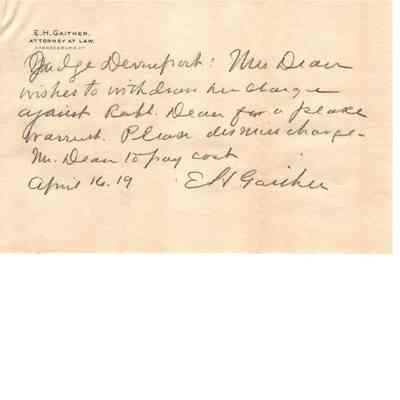 E.H. GAITHER,
ATTORNEY AT LAW,
HARRODSBURG, KY.
Judge Devenport: Mrs Dean
wishes to withdraw her charge
against Robt. Dean for a peace
warrant. Please dismiss charge—
Mr. Dean to pay cost
April 16.19 E H Gaither